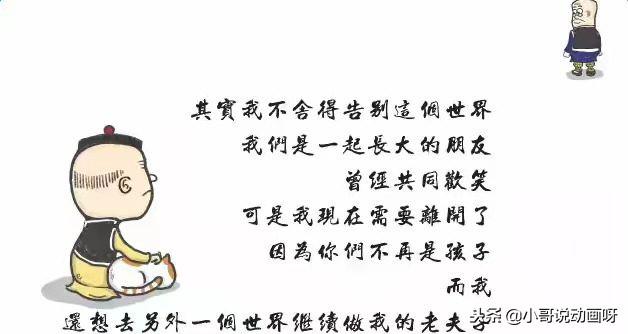 其實我不舍得告别這個世界
我們是一起長大的朋友
曾經共同歡笑
可是我現在需要離開了
因為你們不再是孩子
而我
還想去另外一個世界繼續做我的老夫子
头条 @小哥说动画呀